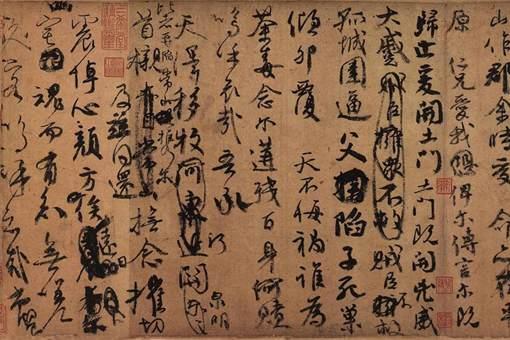 山作郡余時受命亦在平
原仁兄愛我俾爾傳言爾既
歸止爰開土門土門既開凶威
大蹙賊臣擁眾不救賊臣不救
孤城圍逼父陷子死巢
傾卵覆天不悔禍誰為
荼毒念爾遘殘百身何贖
嗚呼哀哉吾承
天澤移牧河關泉明
比者再陷常山攜爾
首櫬及茲同還撫念摧切
震悼心顏方俟遠日
宅魂而有知無嗟
久客嗚呼哀哉尚饗